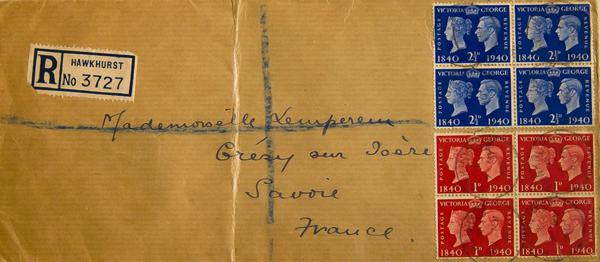 HAWKHURST
R No 3727
Mademoiselle Kemperem
Crésy sur Isère
Savoie
France.
VICTORIA GEORGE
POSTAGE REVENUE
1840 2½D 1940
VICTORIA GEORGE
POSTAGE REVENUE
1840 2½D 1940
VICTORIA GEORGE
POSTAGE REVENUE
1840 2½D 1940
VICTORIA GEORGE
POSTAGE REVENUE
1840 2½D 1940
VICTORIA GEORGE
POSTAGE REVENUE
1840 1D 1940
VICTORIA GEORGE
POSTAGE REVENUE
1840 1D 1940
VICTORIA GEORGE
POSTAGE REVENUE
1840 1D 1940
VICTORIA GEORGE
POSTAGE REVENUE
1840 1D 1940